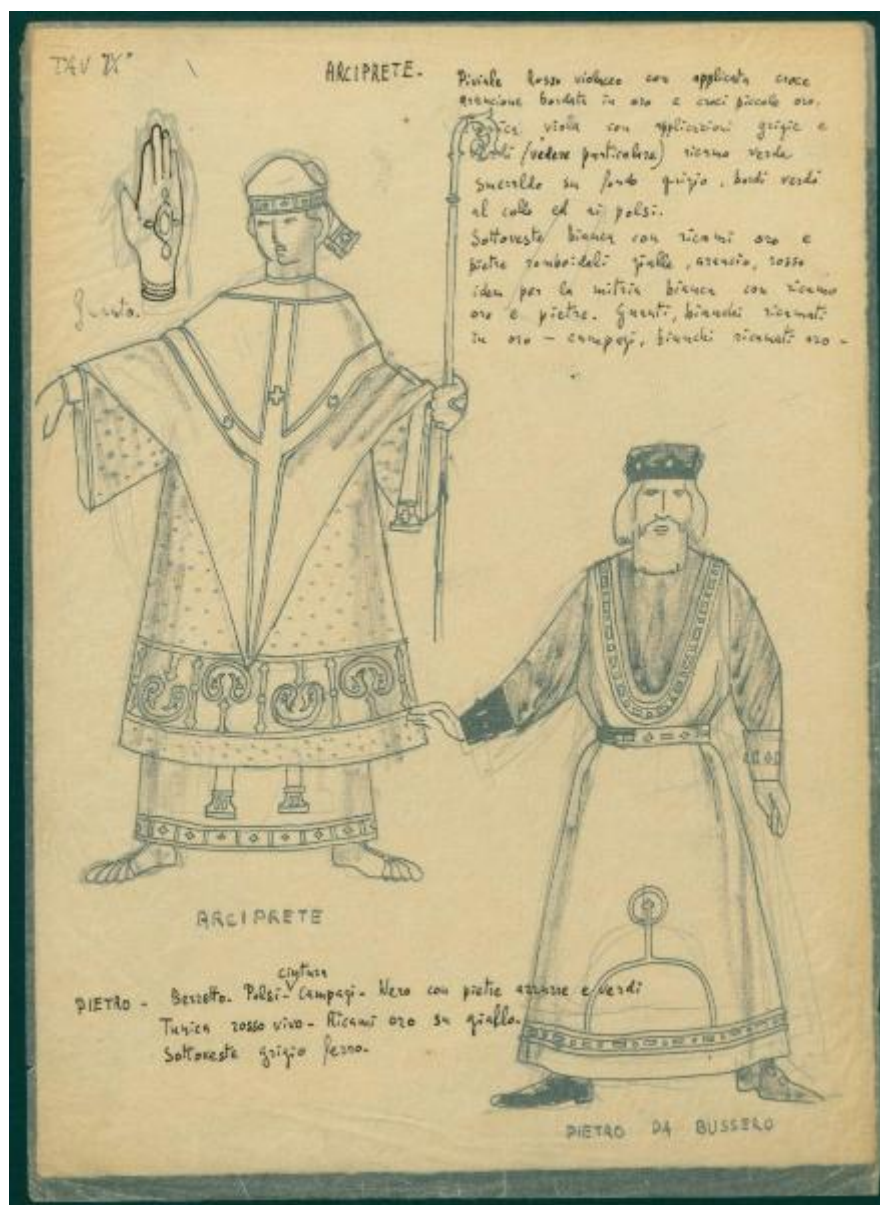 TAV IX°
ARCIPRETE.
Piviale rosso violaceo con applicata croce
arancione bordata in oro e croci piccole oro.
Tunica viola con applicazioni grigie e
verdi (vedere particolare) ricamo verde
smeraldo su fondo grigio, bordi verdi
al collo ed ai polsi.
Sottoveste bianca con ricami oro e
pietre romboidali gialle, arancio, rosso
idem per la mitria bianca con ricamo
oro e pietre. Guanti, bianchi ricamati
in oro - campagi, bianchi ricamati oro -
Guanto.
ARCIPRETE
cintura
PIETRO - Berretto. Polsi - Campagi - Nero con pietre azzurre e verdi
Tunica rosso vivo - Ricami oro su giallo.
Sottoveste grigio ferro.
PIETRO DA BUSSERO